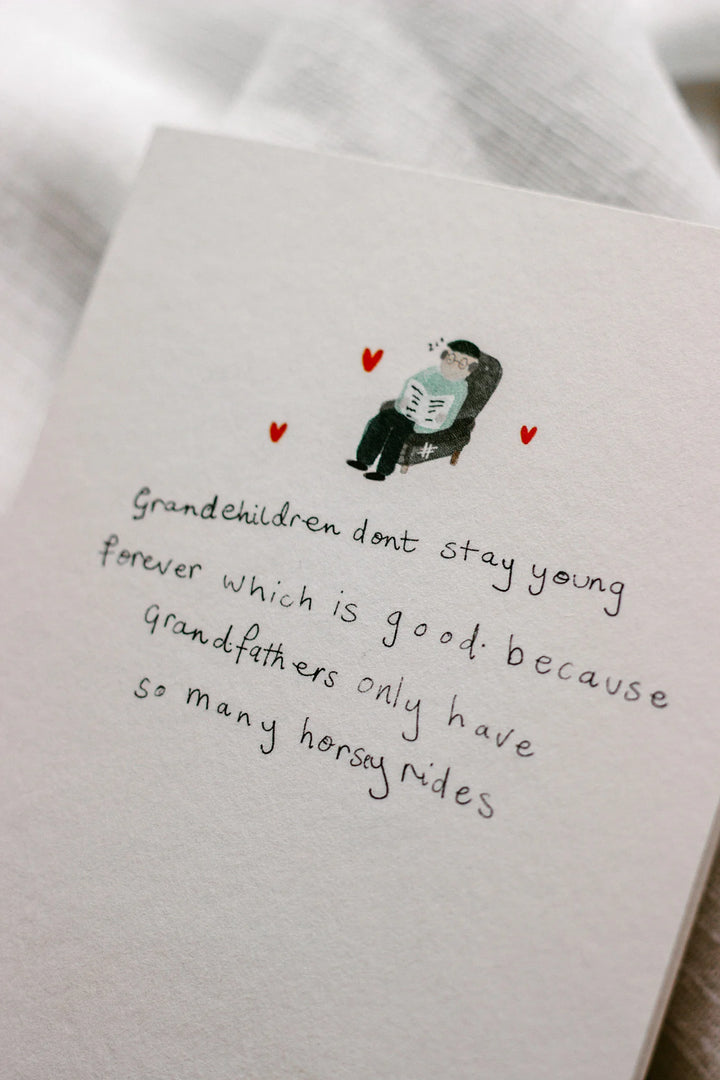 Grandchildren dont stay young
forever which is good. because
grandfathers only have
so many horsey rides